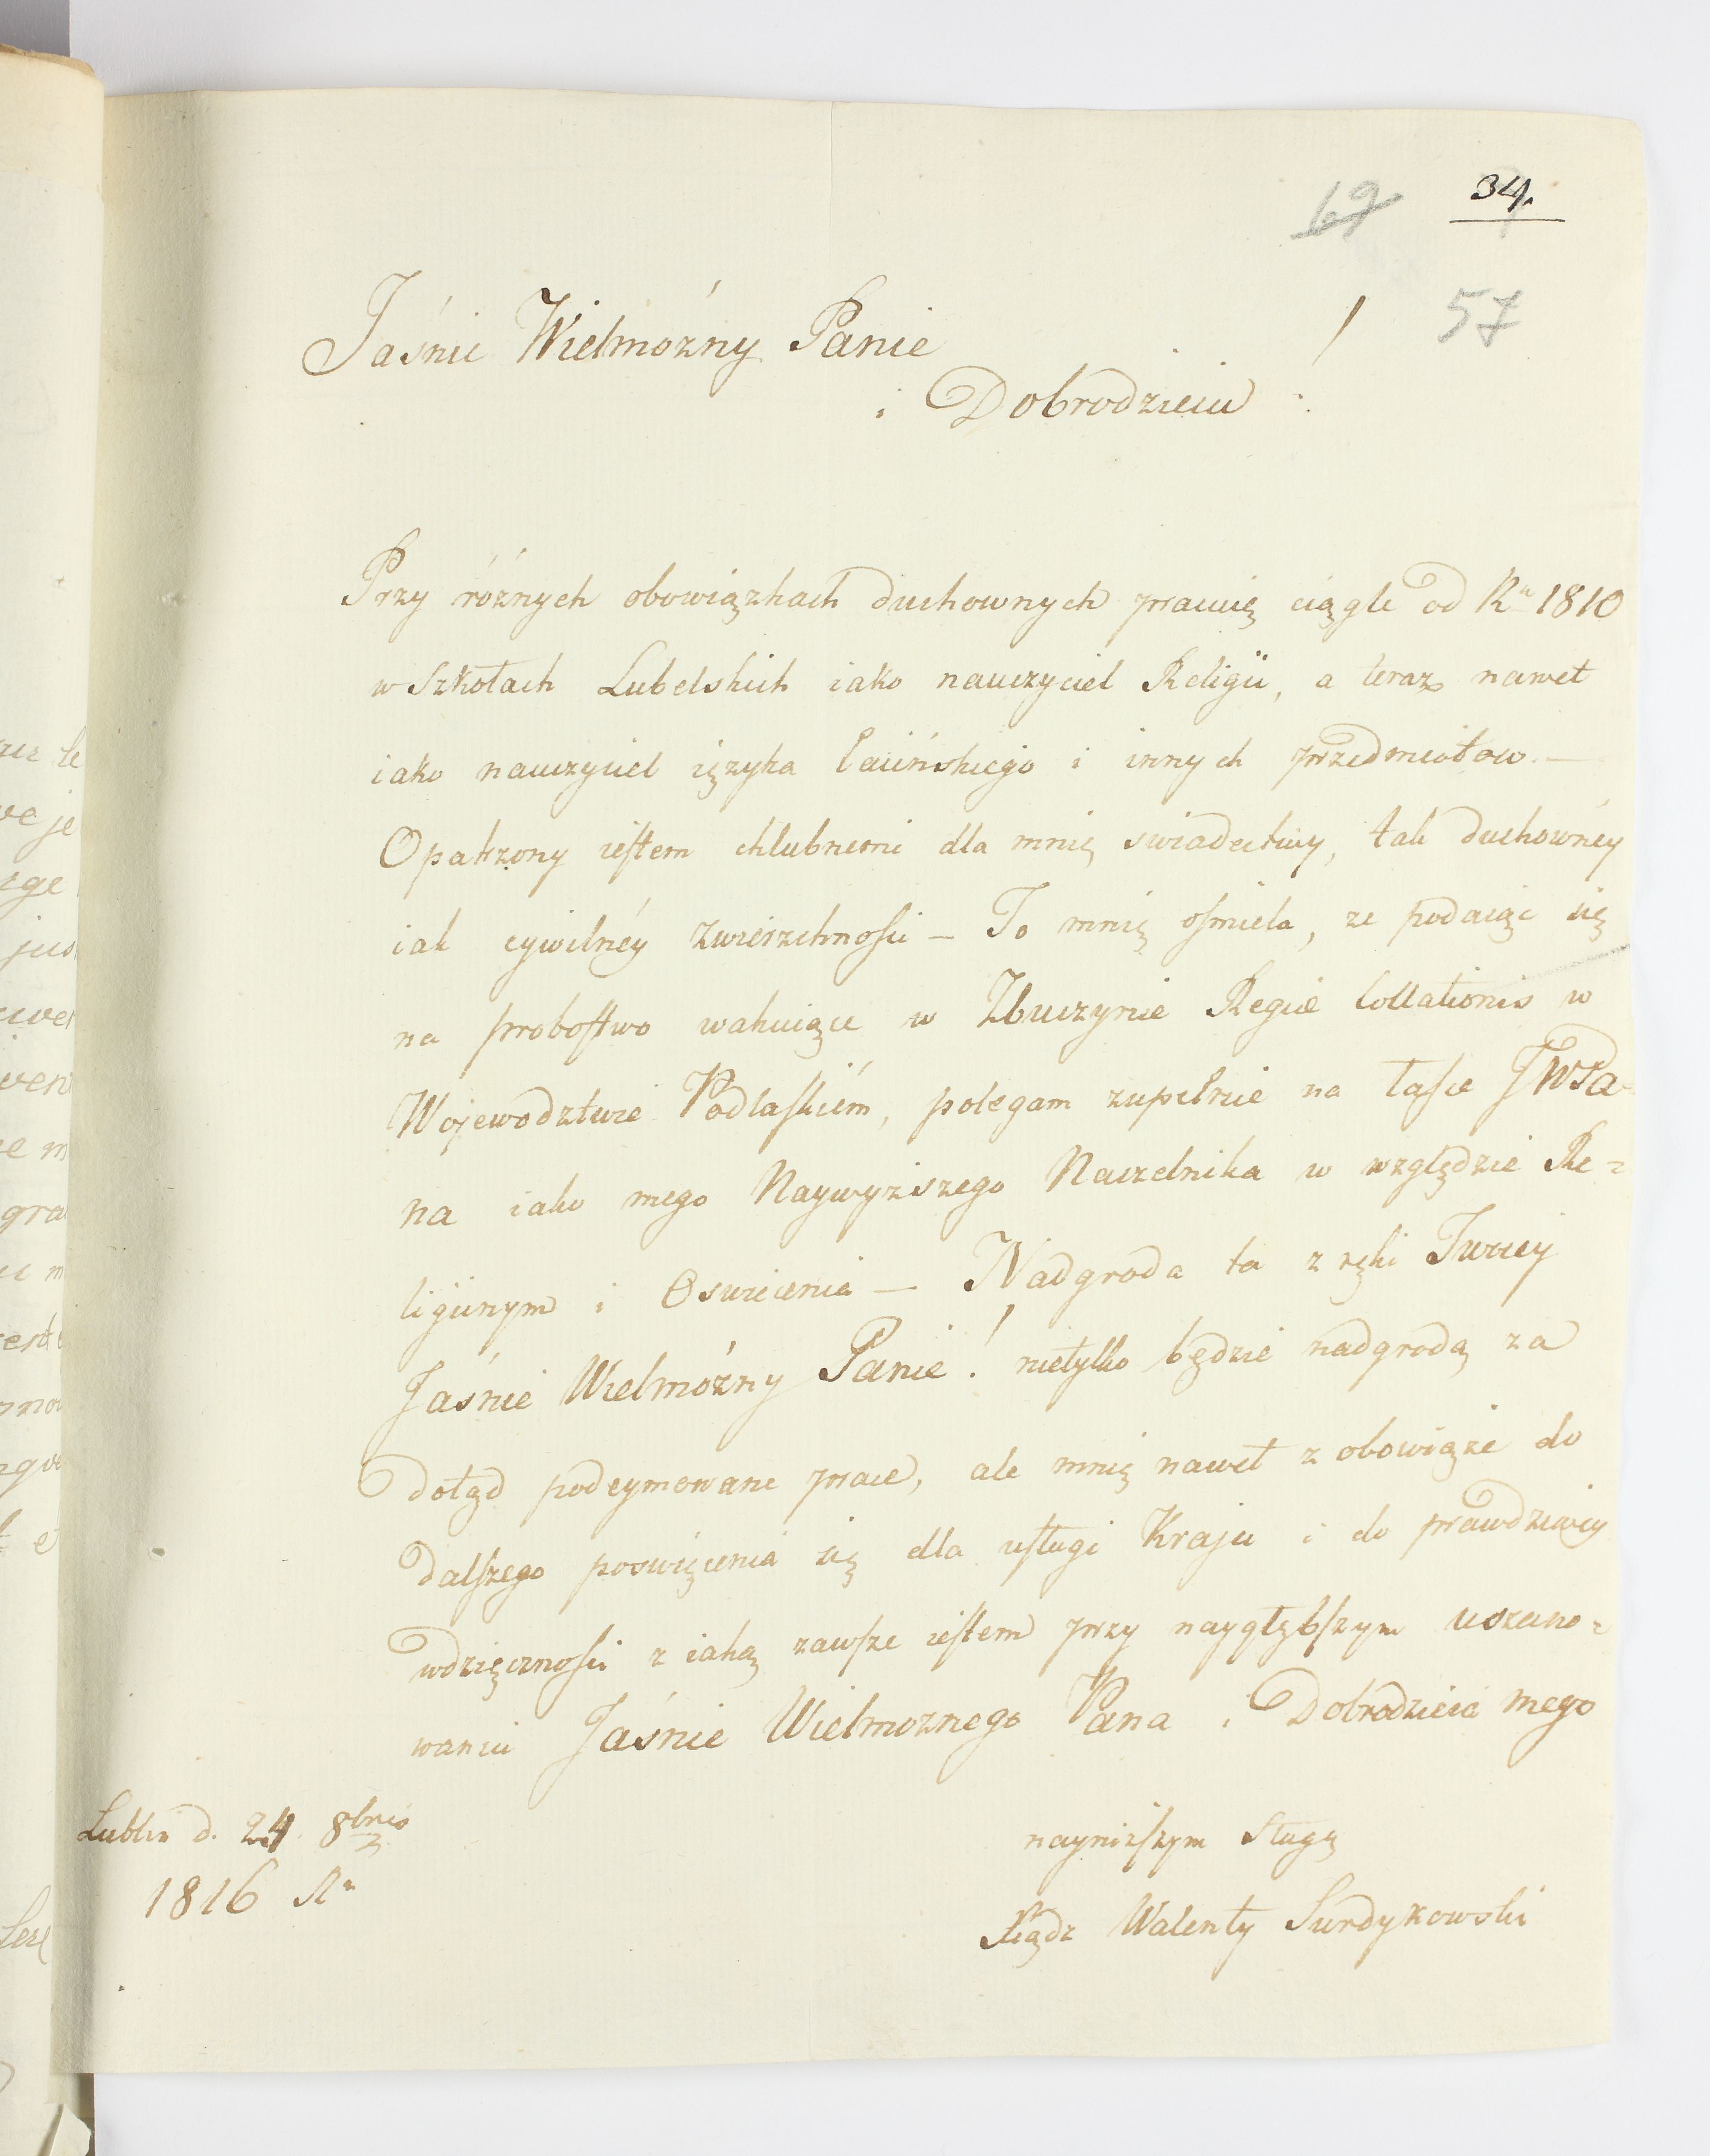 69
34.
57
Jaśnie Wielmożny Panie
i Dobrodzieiu !
Przy różnych obowiązkach duchownych pracuię ciągle od Ru 1810
w Szkołach Lubelskich iako nauczyciel Religii, a teraz nawet
iako nauczyciel ięzyka łacińskiego i innych przedmiotow. —
Opatrzony iestem chlubnemi dla mnię swiadectwy, tak duchownéy
iak cywilnéy Zwierzchnosci — To mnię osmiela, ze podaiąc się
na probostwo wakuiące w Zbuczynie Regiæ Collationis w
Wojewodztwie Podlaskiém, polegam zupełnie na łasce JWPa-
na iako mego Naywyższego Naczelnika w względzie Re=
ligiinym i Oswiecenia — Nadgroda ta z ręki Twoiey
Jaśnie Wielmożny Panie! nietylko będzie nadgrodą za
dotąd podeymowane prace, ale mnię nawet z obowiąże do
dalszego poswięcenia się dla usługi Kraju i do prawdziwey
wdzięcznosci z iaką zawsze iestem przy naygłębszym uszano=
waniu Jaśnie Wielmoznego Pana i Dobrodzieia mego
Lublin d. 24 8bris
1816 Ru
nayniższym Sługą
Xiądz Walenty Surdykowski